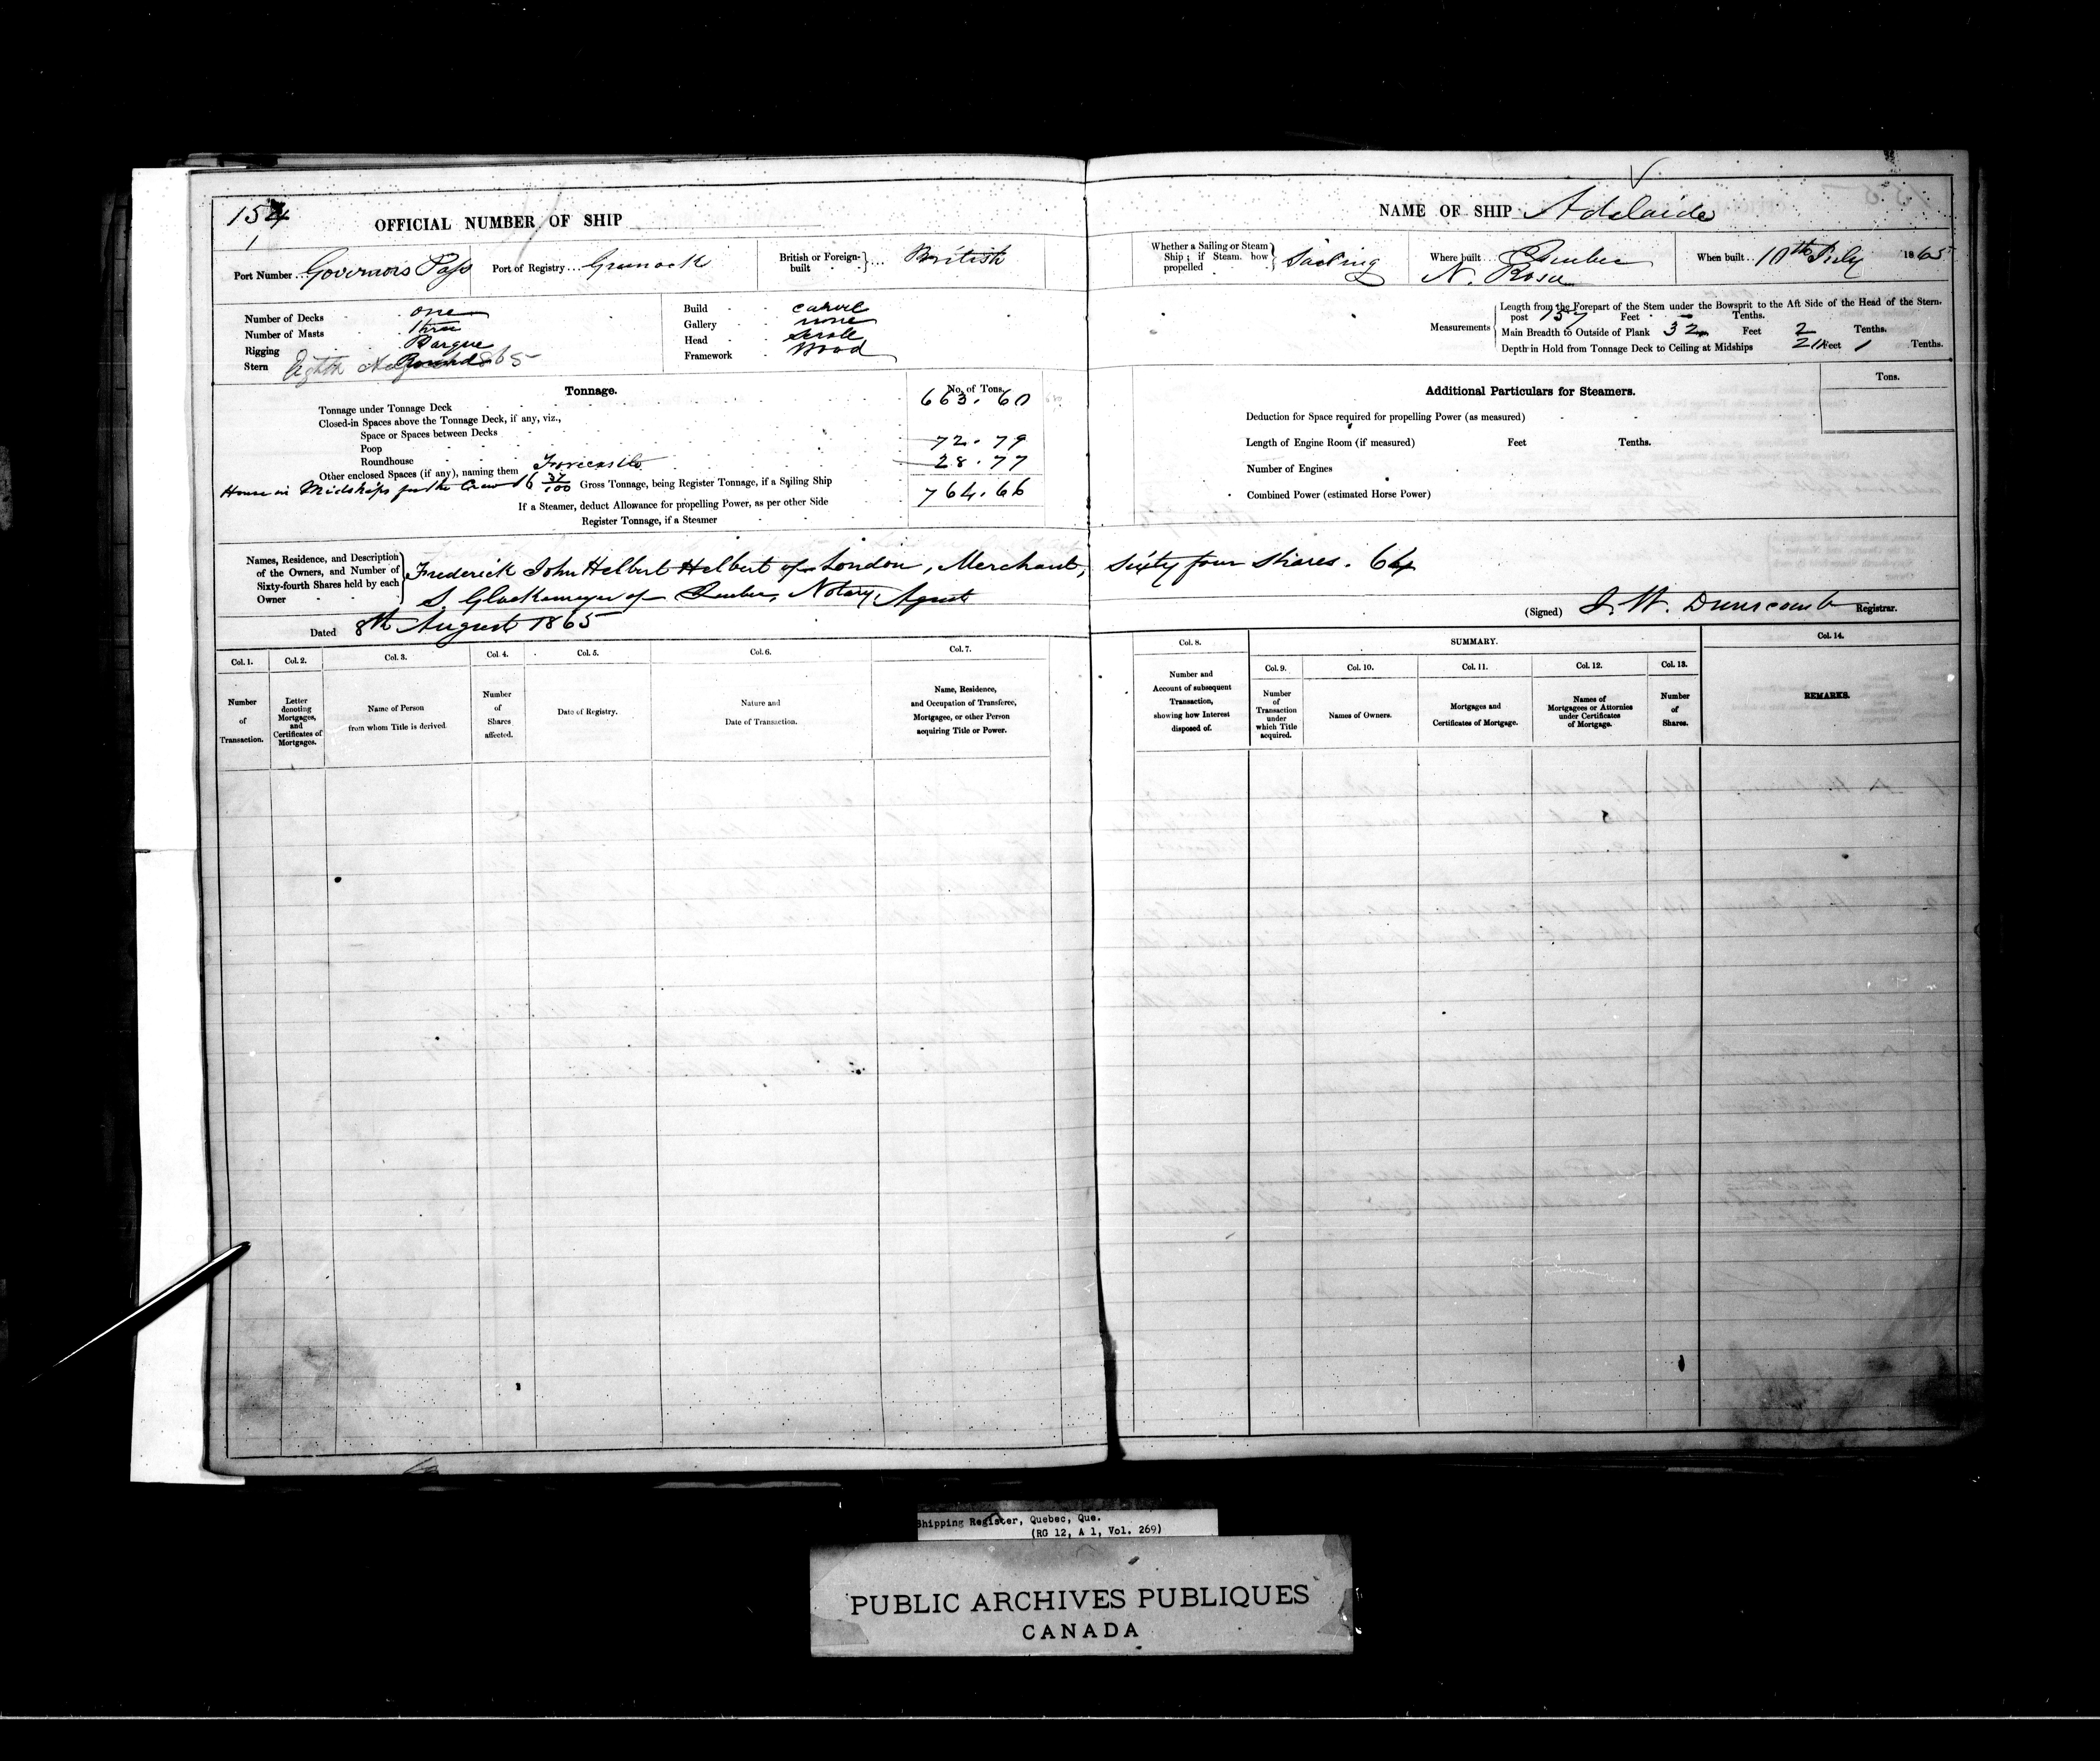 154
1
OFFICIAL NUMBER OF SHIP
Port Number Governors Pass Port of Registry Greenock British or Foreign-built British
Number of Decks one
Number of Masts three
Rigging Barque
Stern Round
Build carvel
Gallery none
Head scrole
Framework Wood
Tonnage. No. of Tons.
Tonnage under Tonnage Deck 663.60
Closed-in Spaces above the Tonnage Deck, if any, viz.,
Space or Spaces between Decks
Poop 72.79
Roundhouse
Other enclosed Spaces (if any), naming them Forecastle 28.77
House in Midships for the Crew 16 37/100 Gross Tonnage, being Register Tonnage, if a Sailing Ship 764.66
If a Steamer, deduct Allowance for propelling Power, as per other Side
Register Tonnage, if a Steamer
NAME OF SHIP Adelaide
Whether a Sailing or Steam Ship; if Steam, how propelled Sailing Where built Quebec When built 10th July 1865
N. Rosa
Measurements
Length from the Forepart of the Stem under the Bowsprit to the Aft Side of the Head of the Stern-
post 157 Feet - Tenths.
Main Breadth to Outside of Plank 32 Feet 2 Tenths.
Depth in Hold from Tonnage Deck to Ceiling at Midships Feet 1 Tenths.
Additional Particulars for Steamers. Tons.
Deduction for Space required for propelling Power (as measured)
Length of Engine Room (if measured) Feet Tenths.
Number of Engines
Combined Power (estimated Horse Power)
Names, Residence, and Description of the Owners, and Number of Sixty-fourth Shares held by each Owner
Frederick John Helbert Helbert of London, Merchant, Sixty four Shares. 64
S. Glackemeyer of Quebec, Notary, Agent
(Signed) J. W. Dunscomb Registrar.
Dated 8th August 1865
Col. 1. Col. 2. Col. 3. Col. 4. Col. 5. Col. 6. Col. 7. Col. 8. SUMMARY. Col. 14.
Col. 9. Col. 10. Col. 11. Col. 12. Col. 13.
Number of Transaction.
Letter denoting Mortgages, and Certificates of Mortgages.
Name of Person from whom Title is derived.
Number of Shares affected.
Date of Registry.
Nature and Date of Transaction.
Name, Residence, and Occupation of Transferee, Mortgagee, or other Person acquiring Title or Power.
Number and Account of subsequent Transaction, showing how Interest disposed of.
Number of Transaction under which Title acquired.
Names of Owners.
Mortgages and Certificates of Mortgage.
Names of Mortgagees or Attornies under Certificates of Mortgage.
Number of Shares.
REMARKS.
Shipping Register, Quebec, Que.
(RG 12, A 1, Vol. 269)
PUBLIC ARCHIVES PUBLIQUES
CANADA